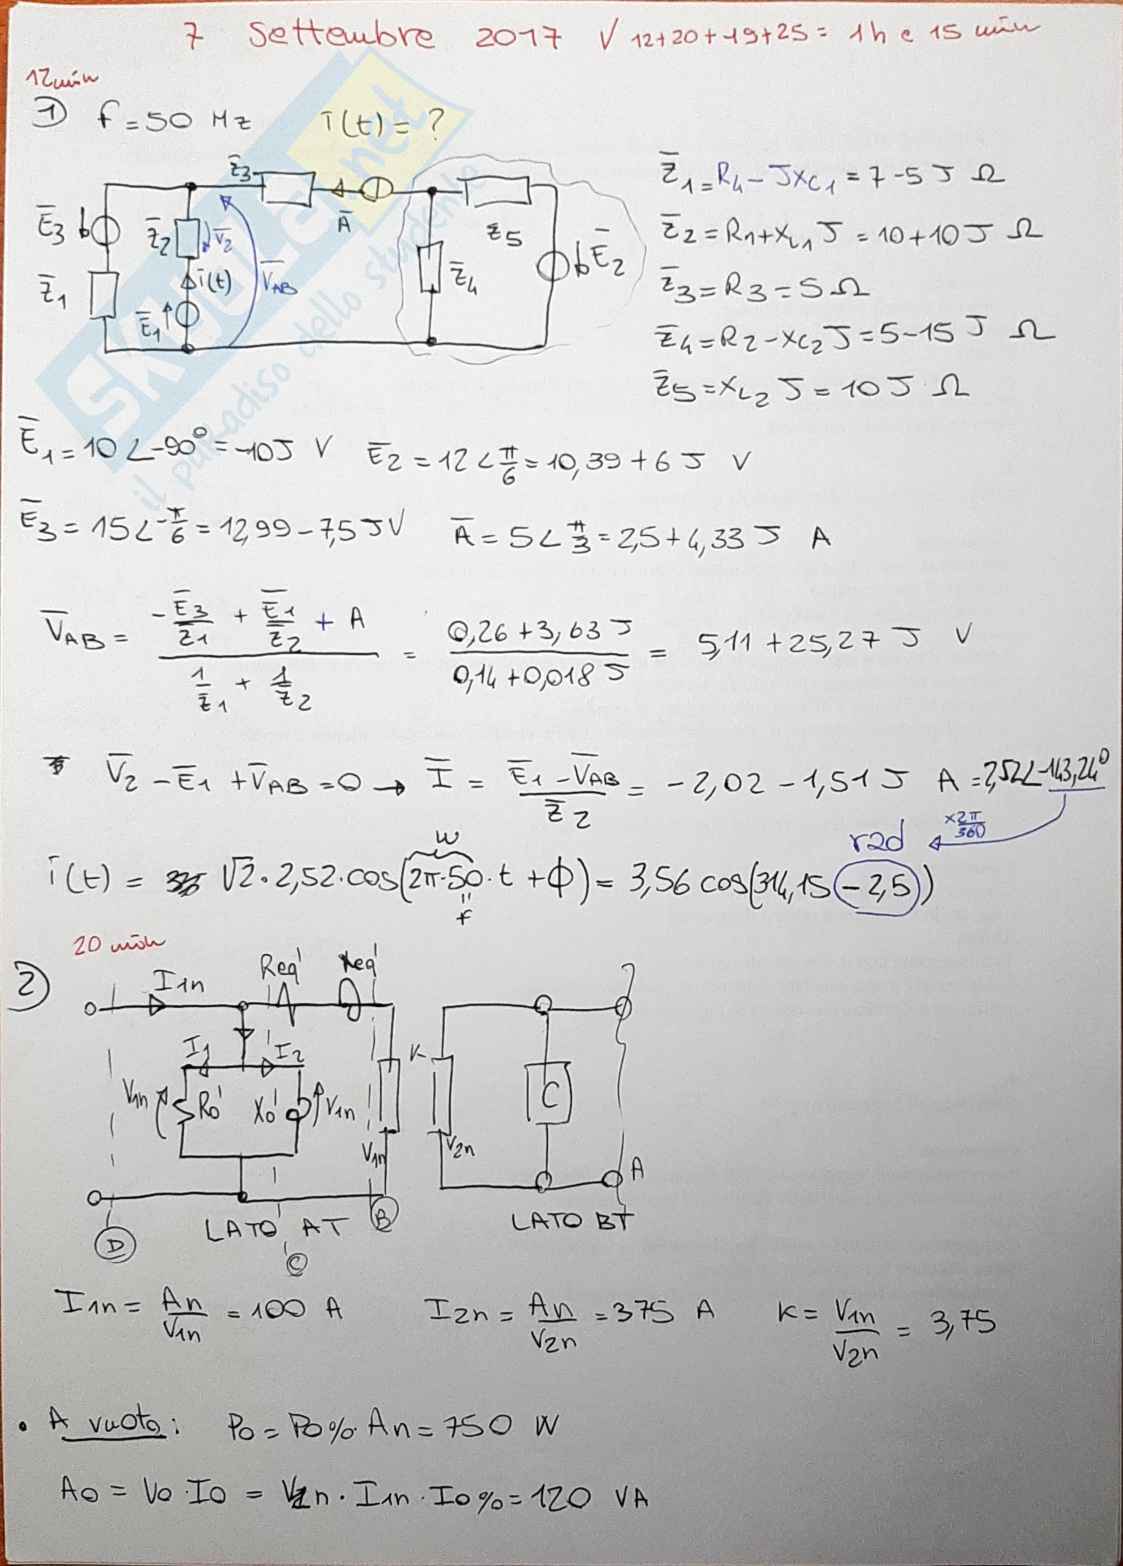 7 Settembre 2017 √ 12+20+19+25 = 1h e 15 min
12min
1) f = 50 Hz   i(t) = ?
Z̄3
Ē3 Z̄2 V̄2 Ā Z5 Ē2
Z̄1 i(t) V̄AB Z̄4
Ē1
Z̄1 = R4 - JXC1 = 7 - 5 J Ω
Z̄2 = R1 + XL1 J = 10 + 10 J Ω
Z̄3 = R3 = 5 Ω
Z̄4 = R2 - XC2 J = 5 - 15 J Ω
Z̄5 = XL2 J = 10 J Ω
Ē1 = 10∠-90° = -10J V   Ē2 = 12∠π/6 = 10,39 + 6 J V
Ē3 = 15∠-π/6 = 12,99 - 7,5 J V   Ā = 5∠π/3 = 2,5 + 4,33 J A
V̄AB = (-Ē3/Z̄1 + Ē1/Z̄2 + A) / (1/Z̄1 + 1/Z̄2) = (0,26 + 3,63 J) / (0,14 + 0,018 J) = 5,11 + 25,27 J V
V̄2 - Ē1 + V̄AB = 0 → Ī = (Ē1 - V̄AB) / Z̄2 = -2,02 - 1,51 J A = 2,52∠-143,24°
rad ×2π/360
w
i(t) = √2 · 2,52 · cos(2π·50·t + φ) = 3,56 cos(314,15 - 2,5)
f
20 min
2) I1n Req' Xeq'
I1 I2 K
V1n R0' X0' V1n C
V1n V2n A
D LATO AT B LATO BT
C
I1n = An/V1n = 100 A   I2n = An/V2n = 375 A   K = V1n/V2n = 3,75
• A vuoto: P0 = P0% · An = 750 W
A0 = V0 · I0 = V1n · I1n · I0% = 120 VA
SKUOLA.net
il paradiso dello studente